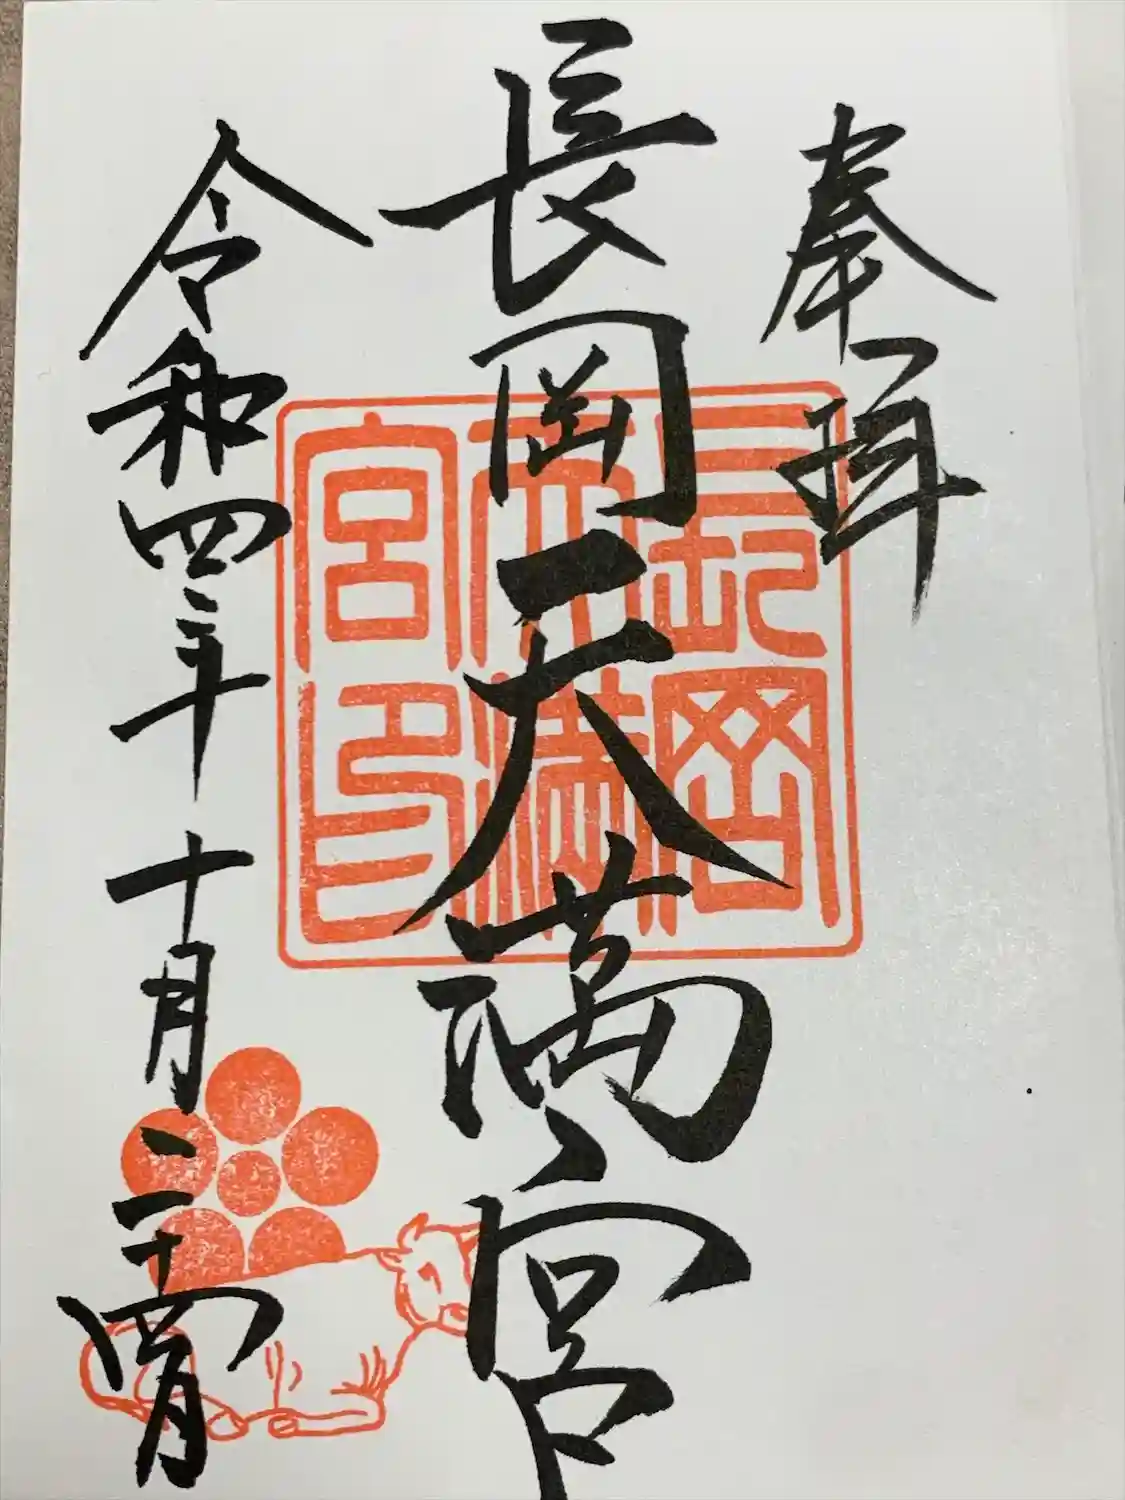 奉拝
長岡天満宮
令和四年十月二十四日
長岡
天満
宮印